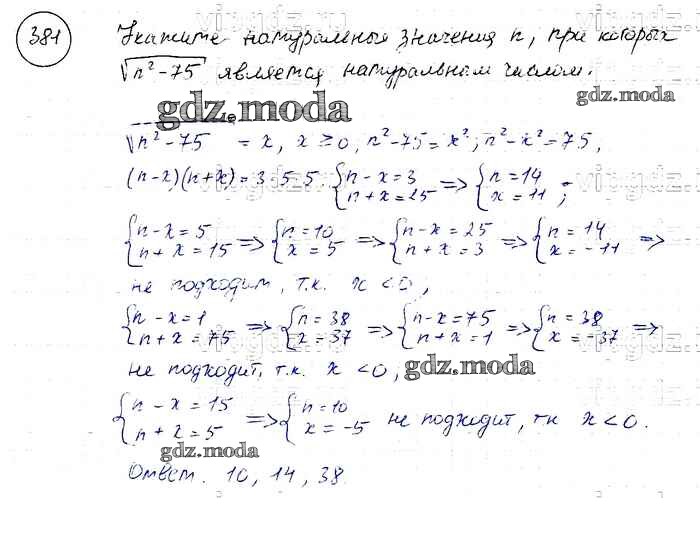 381
Укажите натуральные значения n, при которых
√n²-75 является натуральным числом.
gdz.moda
gdz.moda
√n²-75 = x, x ≥ 0, n²-75 = x²; n²-x² = 75,
(n-x)(n+x) = 3·5·5 {n-x=3 n+x=25 => {n=14 x=11 ;
{n-x=5 n+x=15 => {n=10 x=5 => {n-x=25 n+x=3 => {n=14 x=-11 =>
не подходит, т.к. x<0,
{n-x=1 n+x=75 => {n=38 x=37 => {n-x=75 n+x=1 => {n=38 x=-37 =>
не подходит, т.к. x<0,
gdz.moda
{n-x=15 n+2=5 => {n=10 x=-5 не подходит, тк x<0.
gdz.moda
Ответ. 10, 14, 38